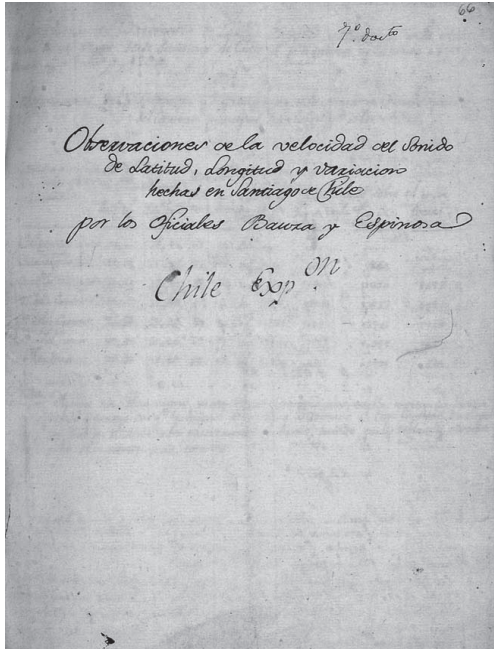 66
7º. docto
Observaciones de la velocidad del Sonido
de Latitud, Longitud y variacion
hechas en Santiago de Chile
por los Oficiales Bauza y Espinosa
Chile Expon.